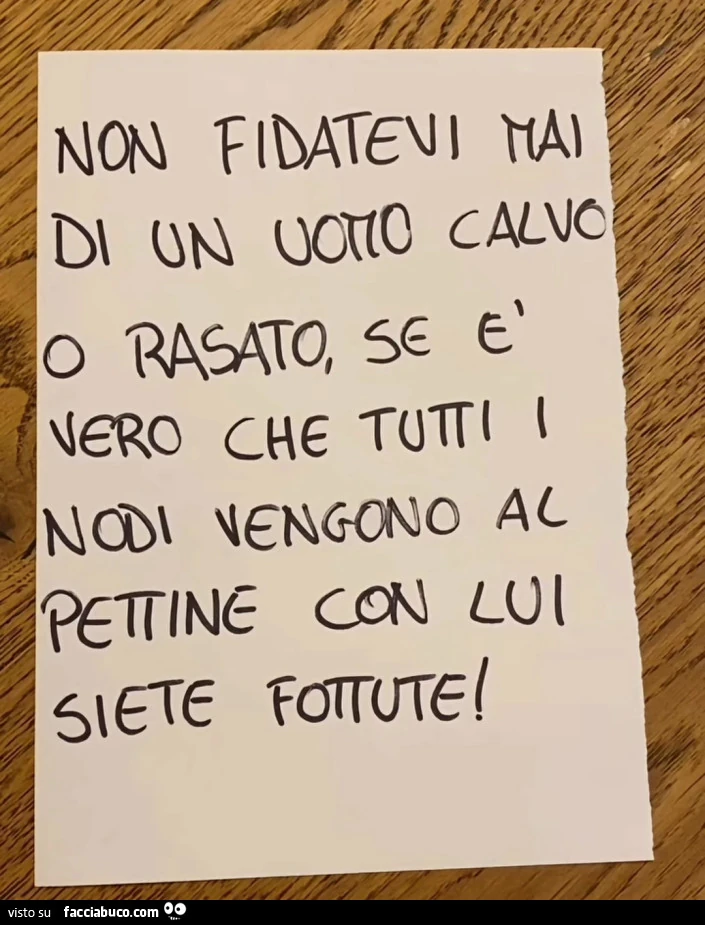 NON FIDATEVI MAI
DI UN UOMO CALVO
O RASATO, SE E'
VERO CHE TUTTI I
NODI VENGONO AL
PETTINE CON LUI
SIETE FOTTUTE!
visto su facciabuco.com